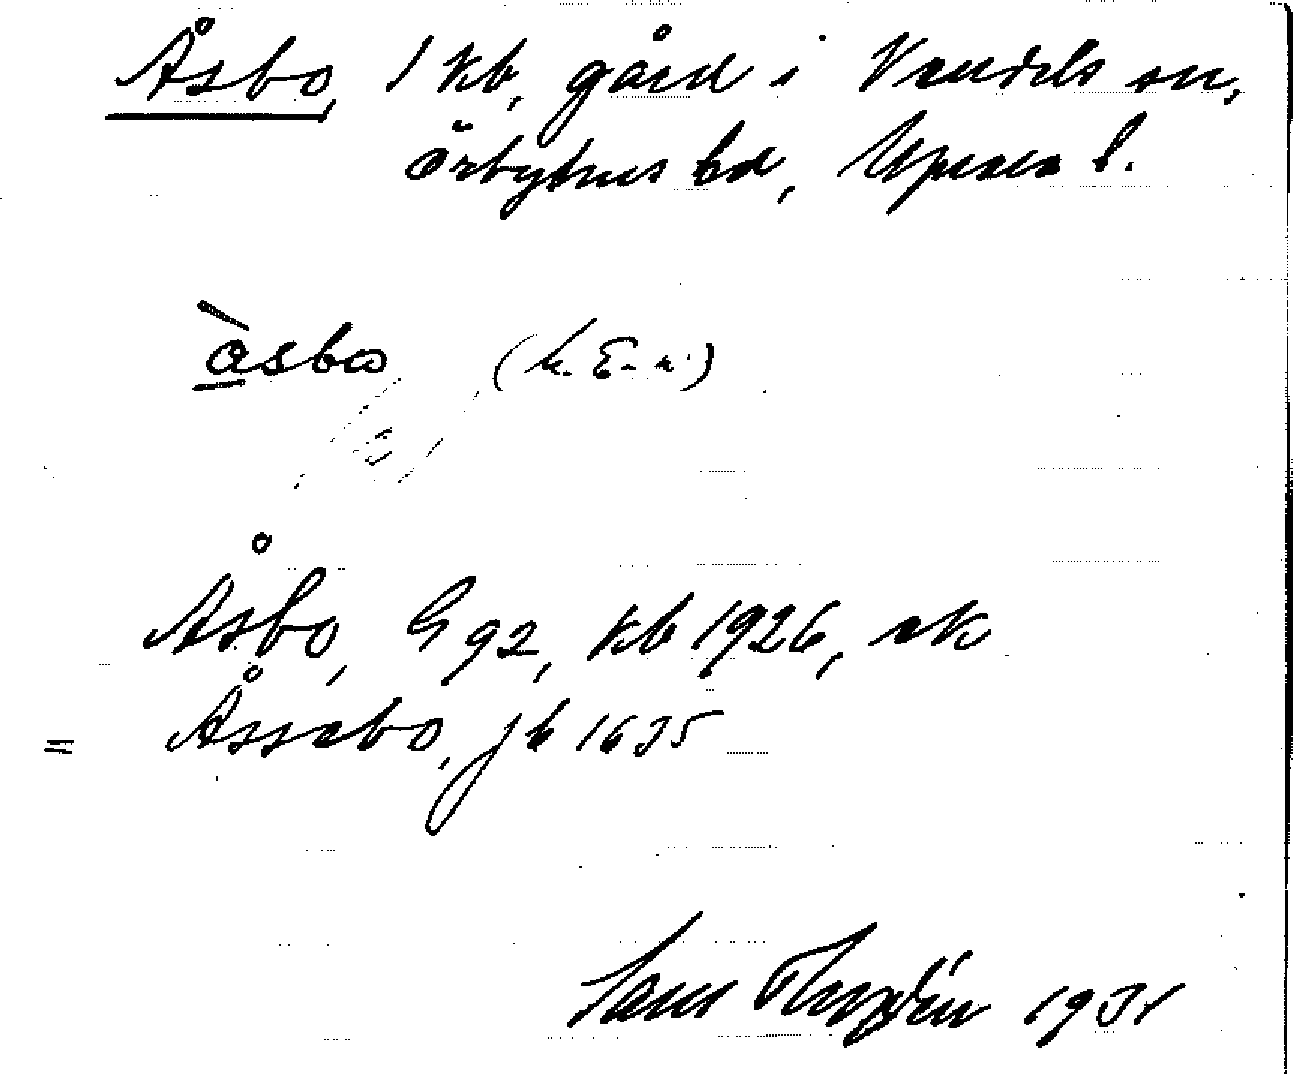 Åsbo, 1 kb, gård i Vendels sn,
Örbyhus hd, Upsala l.
åsbo
Åsbo, G 92, kb 1926, ek
= Åssebo, jb 1635
1931